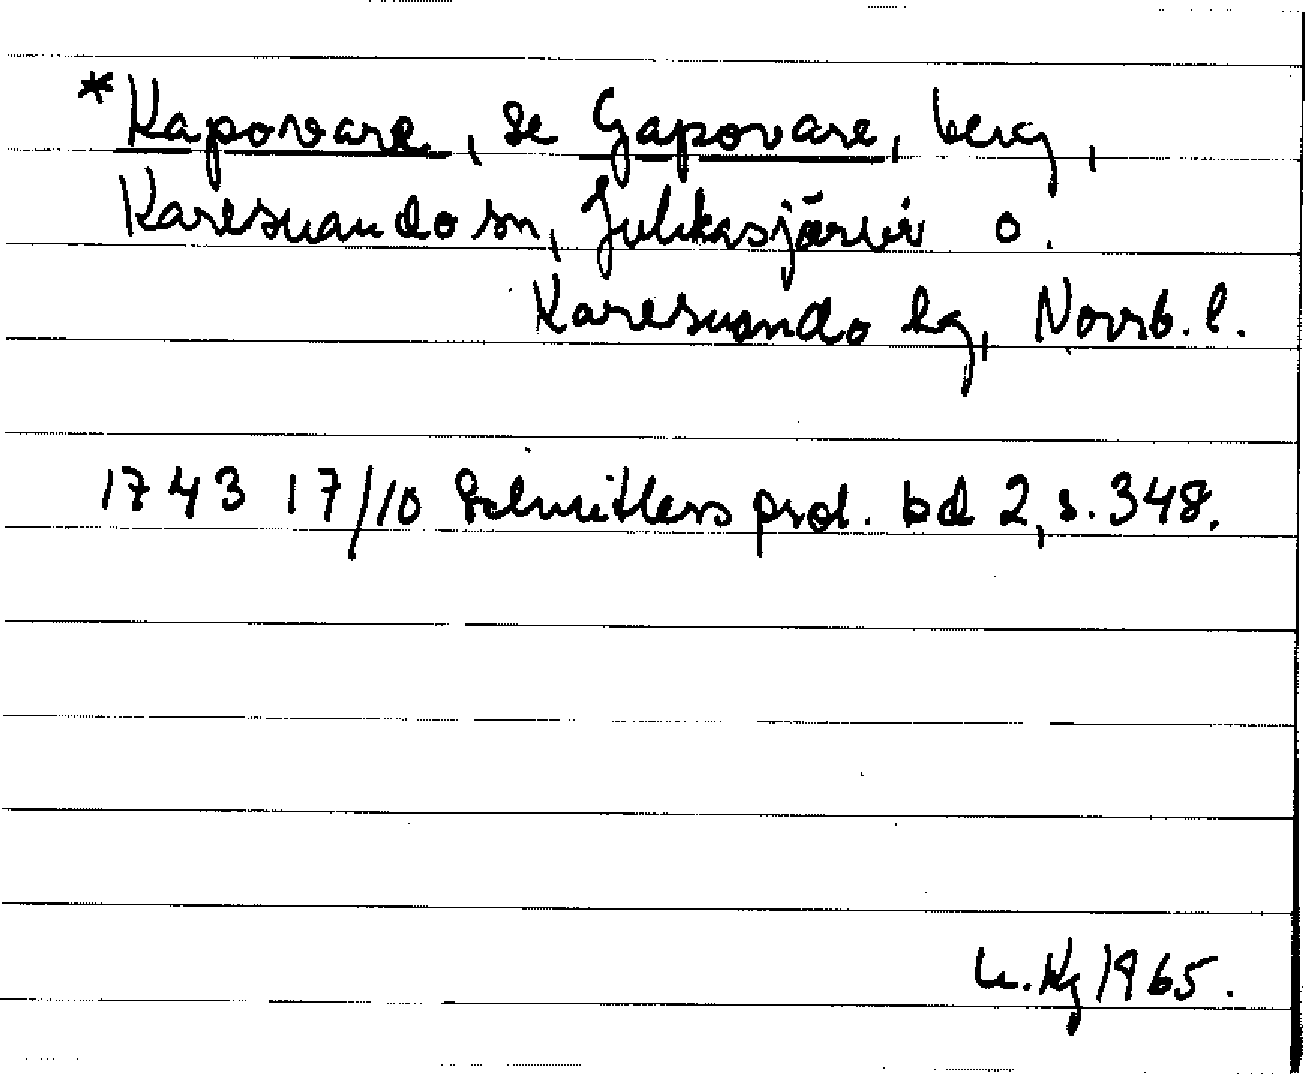 *Kapovare, se Gapovare, berg,
Karesuando sn, Jukkasjärvi o.
Karesuando lg, Norrb. l.
1743 17/10 Schnitlers prot. bd 2, s. 348.
1965.